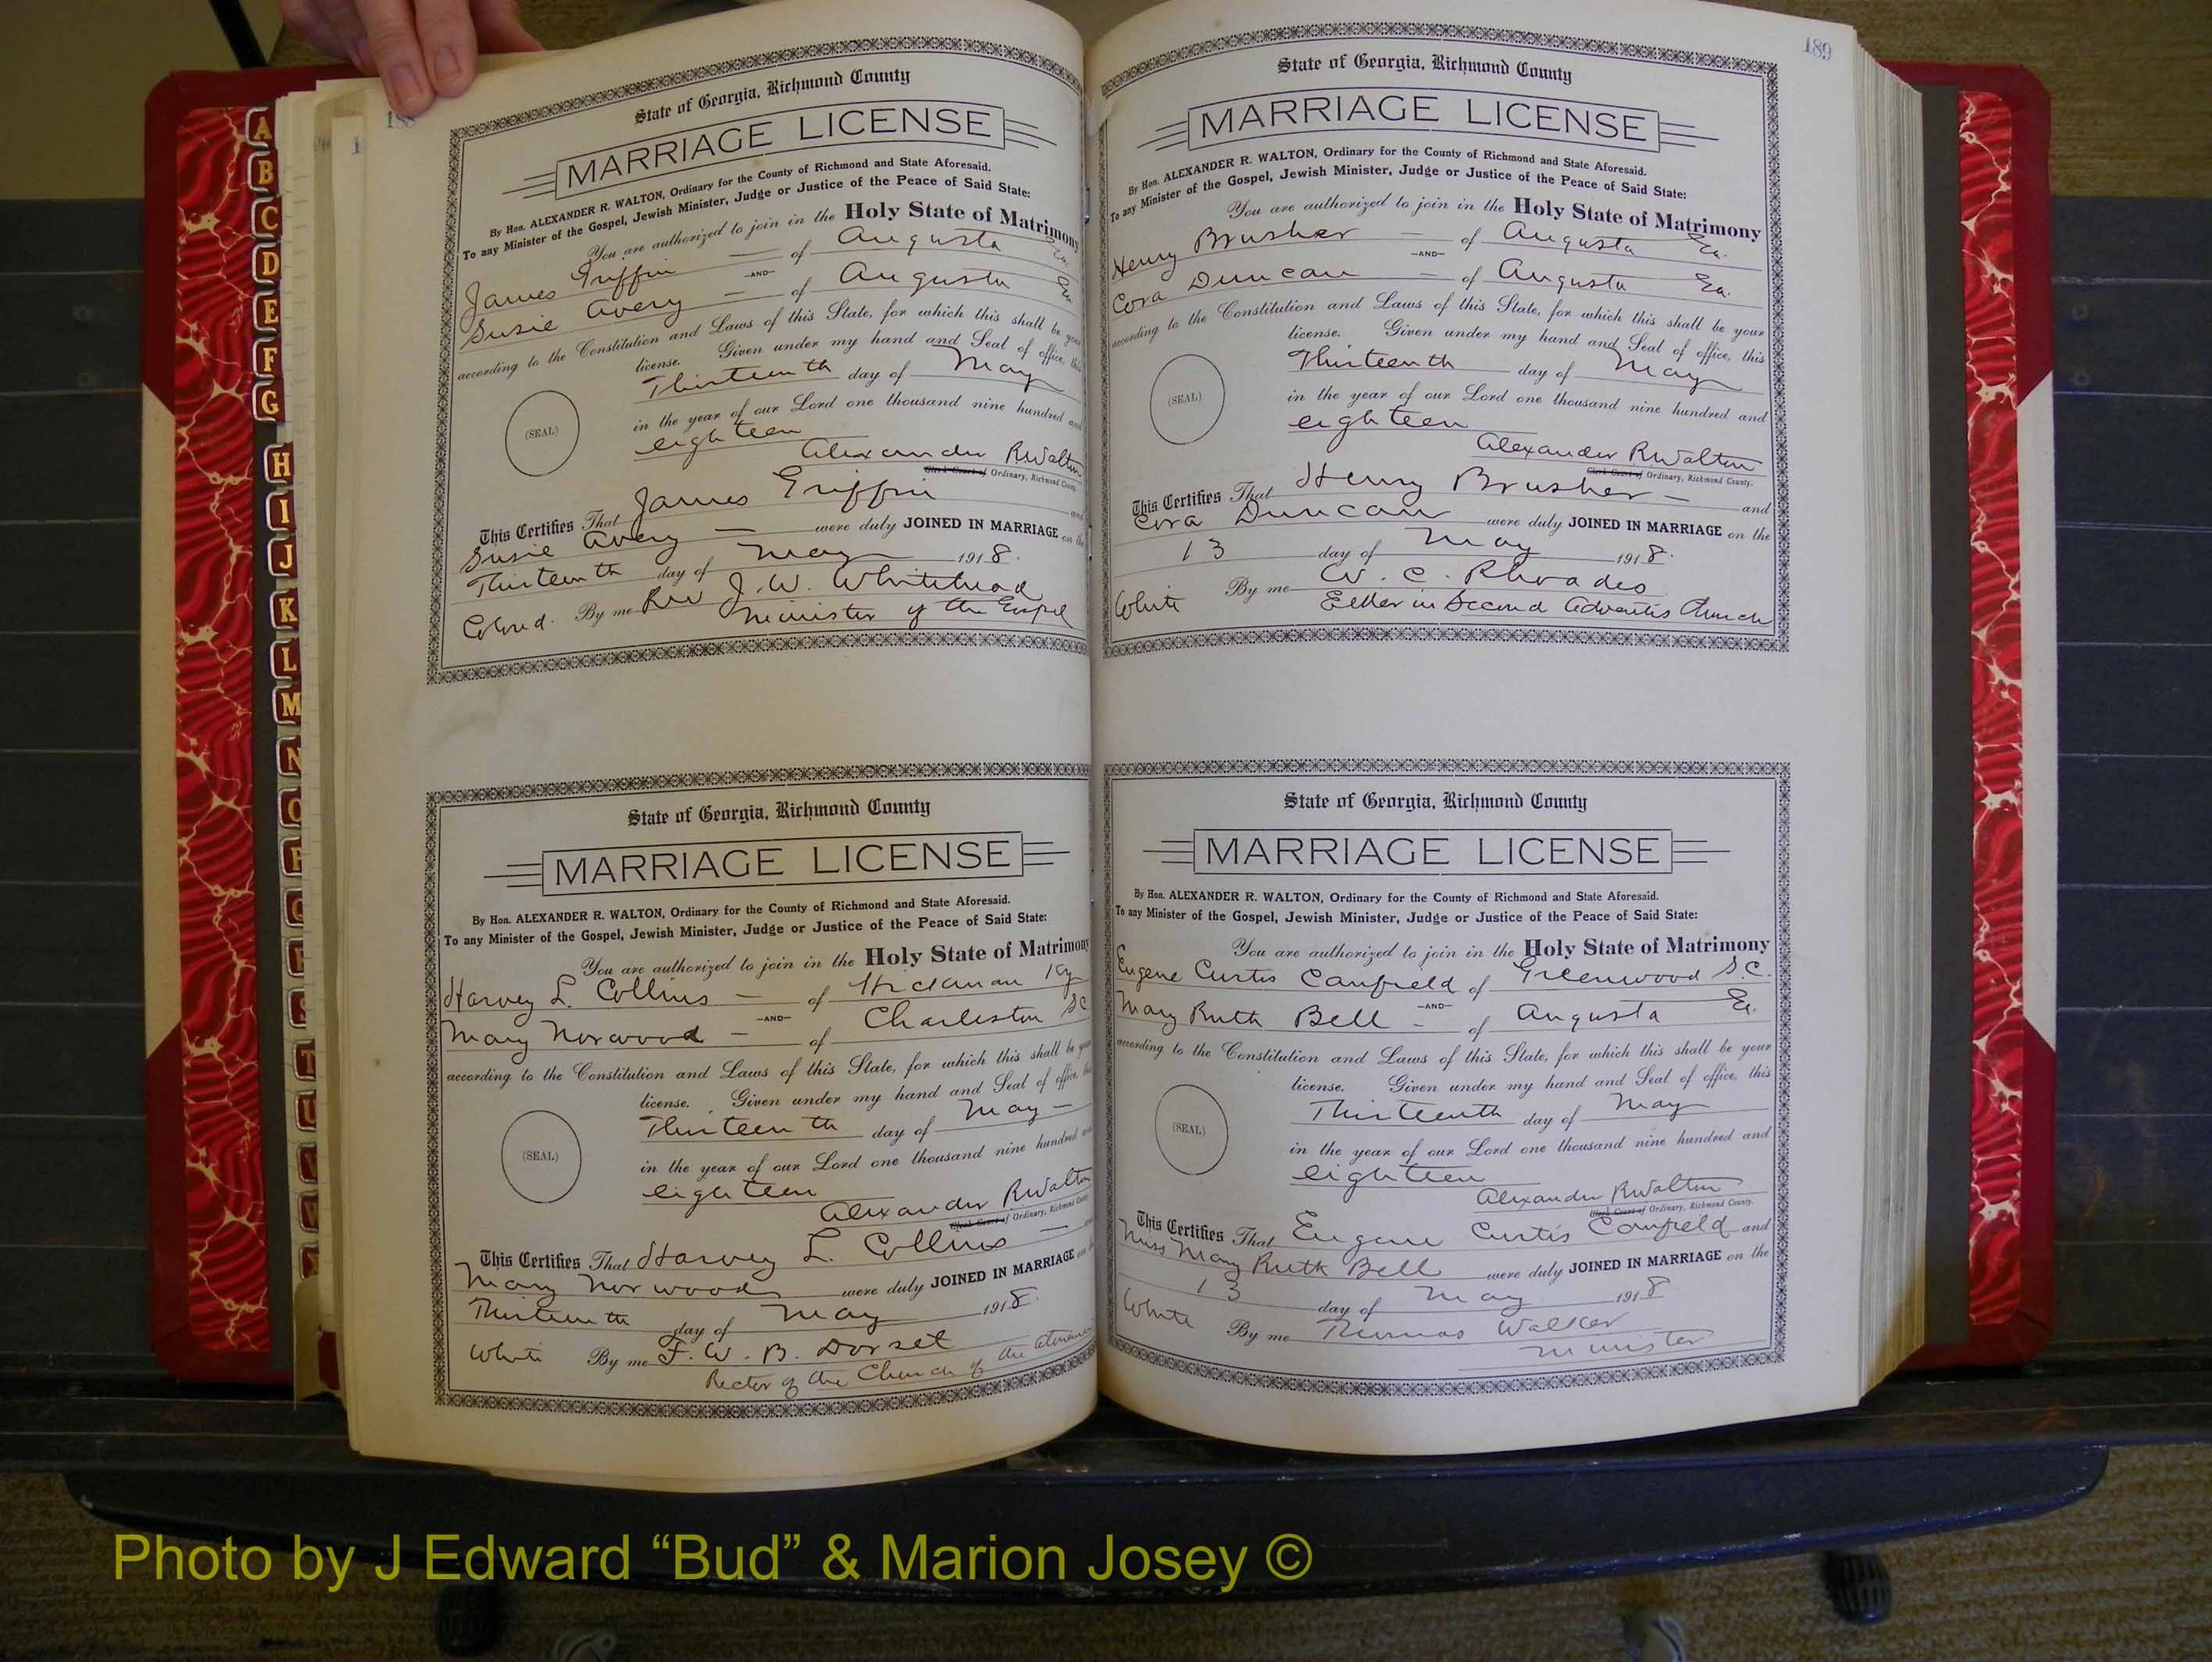 188
State of Georgia, Richmond County
MARRIAGE LICENSE
By Hon. ALEXANDER R. WALTON, Ordinary for the County of Richmond and State Aforesaid.
To any Minister of the Gospel, Jewish Minister, Judge or Justice of the Peace of Said State:
You are authorized to join in the Holy State of Matrimony
James Griffin — of Augusta Ga.
-AND-
Susie Avery — of Augusta Ga.
according to the Constitution and Laws of this State, for which this shall be your
license. Given under my hand and Seal of office, this
Thirteenth day of May
(SEAL)
in the year of our Lord one thousand nine hundred and
eighteen
Alexander R Walton
Clerk Court of Ordinary, Richmond County.
This Certifies That James Griffin and
Susie Avery — were duly JOINED IN MARRIAGE on the
Thirteenth day of May 1918.
Colored. By me Rev J. W. Whitehead
Minister of the Gospel
State of Georgia, Richmond County
MARRIAGE LICENSE
By Hon. ALEXANDER R. WALTON, Ordinary for the County of Richmond and State Aforesaid.
To any Minister of the Gospel, Jewish Minister, Judge or Justice of the Peace of Said State:
You are authorized to join in the Holy State of Matrimony
Harvey L. Collins — of Hickman Ky
-AND-
Mary Norwood — of Charleston SC
according to the Constitution and Laws of this State, for which this shall be your
license. Given under my hand and Seal of office, this
Thirteenth day of May —
(SEAL)
in the year of our Lord one thousand nine hundred and
eighteen
Alexander R Walton
Clerk Court of Ordinary, Richmond County.
This Certifies That Harvey L. Collins — and
Mary Norwood were duly JOINED IN MARRIAGE on the
Thirteenth day of May 1918.
White By me F. W. B. Dorset
Rector of the Church of the
189
State of Georgia, Richmond County
MARRIAGE LICENSE
By Hon. ALEXANDER R. WALTON, Ordinary for the County of Richmond and State Aforesaid.
To any Minister of the Gospel, Jewish Minister, Judge or Justice of the Peace of Said State:
You are authorized to join in the Holy State of Matrimony
Henry Brusher — of Augusta Ga.
-AND-
Cora Duncan — of Augusta Ga.
according to the Constitution and Laws of this State, for which this shall be your
license. Given under my hand and Seal of office, this
Thirteenth day of May
(SEAL)
in the year of our Lord one thousand nine hundred and
eighteen
Alexander R Walton
Clerk Court of Ordinary, Richmond County.
This Certifies That Henry Brusher — and
Cora Duncan were duly JOINED IN MARRIAGE on the
13 day of May 1918.
White By me W. C. Rhoades
Elder in Second Adventis Church
State of Georgia, Richmond County
MARRIAGE LICENSE
By Hon. ALEXANDER R. WALTON, Ordinary for the County of Richmond and State Aforesaid.
To any Minister of the Gospel, Jewish Minister, Judge or Justice of the Peace of Said State:
You are authorized to join in the Holy State of Matrimony
Eugene Curtis Canfield of Greenwood S.C.
-AND-
Mary Ruth Bell — of Augusta Ga.
according to the Constitution and Laws of this State, for which this shall be your
license. Given under my hand and Seal of office, this
Thirteenth day of May
(SEAL)
in the year of our Lord one thousand nine hundred and
eighteen
Alexander R Walton
Clerk Court of Ordinary, Richmond County.
This Certifies That Eugene Curtis Canfield and
Miss Mary Ruth Bell were duly JOINED IN MARRIAGE on the
13 day of May 1918
White By me Thomas Walker
Minister
A
B
C
D
E
F
G
H
I
J
K
L
M
N
O
P
Q
R
S
T
U
V
W
Photo by J Edward “Bud” & Marion Josey ©